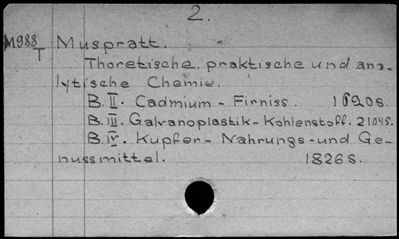 2.
M988 Muspratt.
T
Thoretische, praktische und ana-
lytische Chemie.
B. II. Cadmium - Firniss. 1620s.
B. III. Galvanoplastik - Kohlenstoff. 2104s.
B. IV. Kupfer - Nahrungs - und Ge-
nussmittel. 1826s.